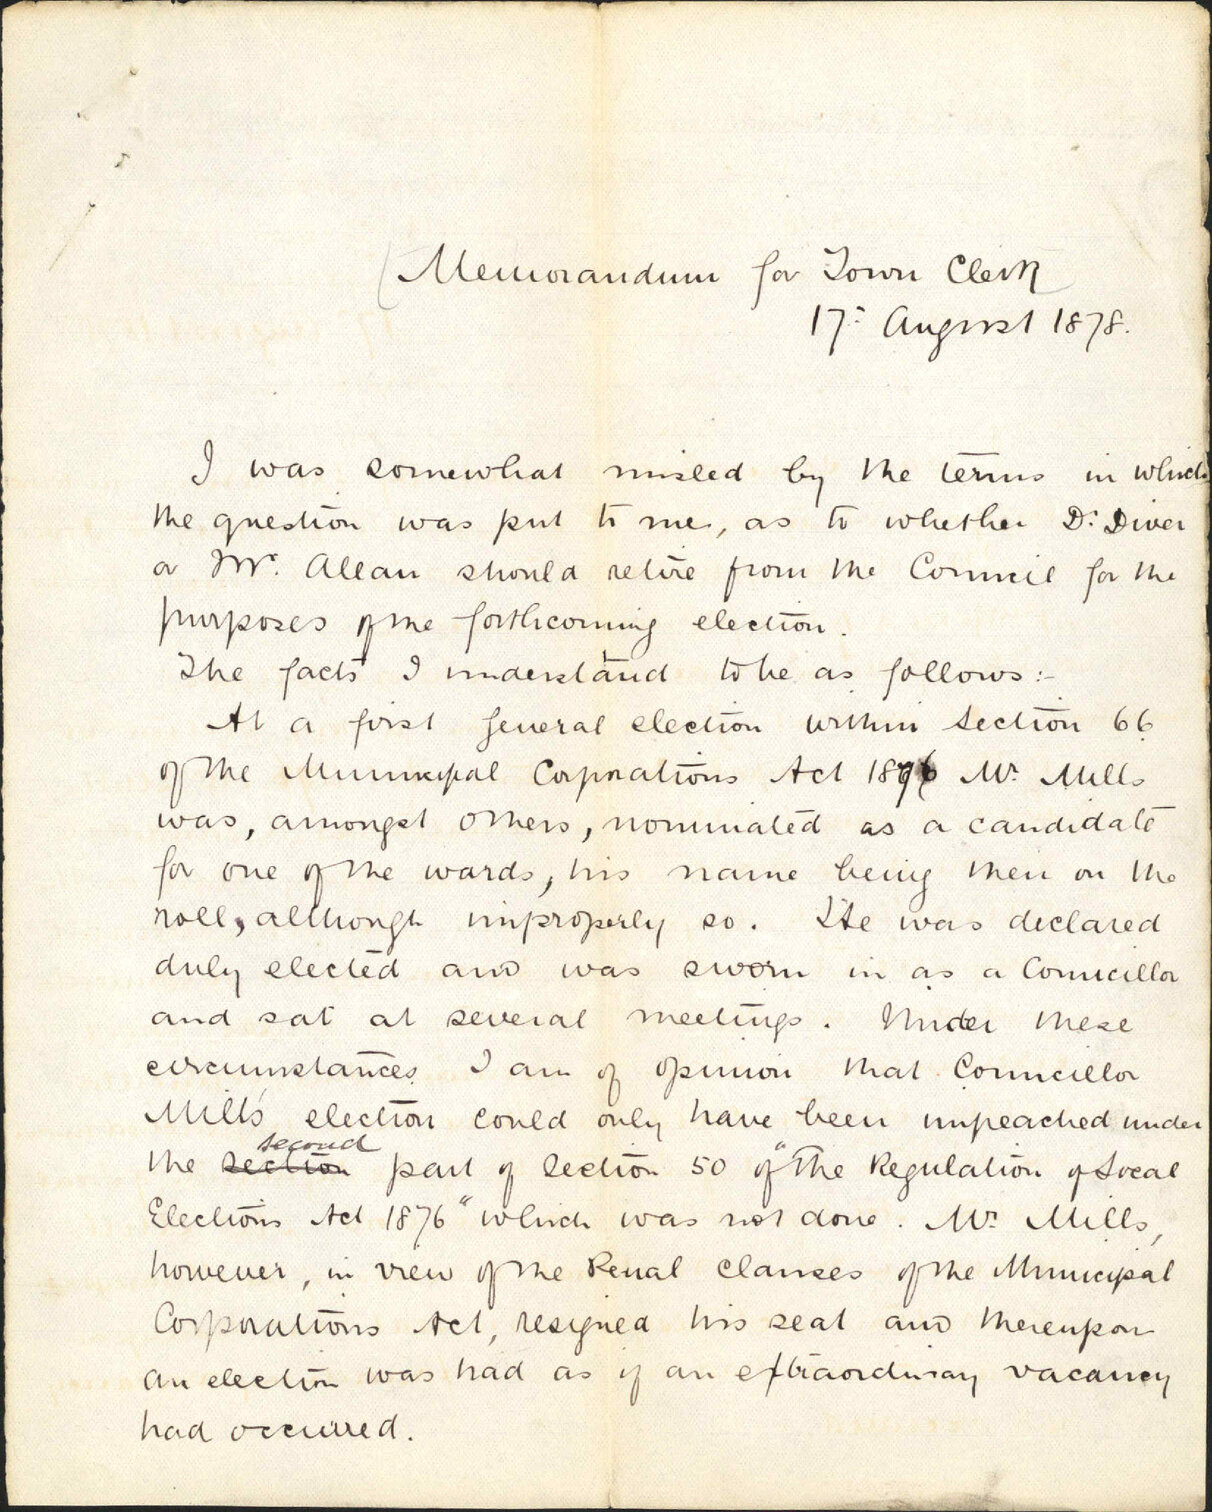 Memorandum for Town Clerk
17: August 1878.
I was somewhat misled by the terms in which
the question was put to me, as to whether Dr. Diver
or Mr. Allan should retire from the Council for the
purposes of the forthcoming election.
The facts I understand to be as follows:-
At a first general election within Section 66
of the Municipal Corporations Act 1876 Mr. Mills
was, amongst others, nominated as a candidate
for one of the wards, his name being then on the
roll, although improperly so. He was declared
duly elected and was sworn in as a Councillor
and sat at several meetings. Under these
circumstances I am of opinion that Councillor
Mills' election could only have been impeached under
second
the section part of section 50 of "The Regulation of Local
Elections Act 1876" which was not done. Mr. Mills,
however, in view of the Penal clauses of the Municipal
Corporations Act, resigned his seat and thereupon
an election was had as if an extraordinary vacancy
had occurred.